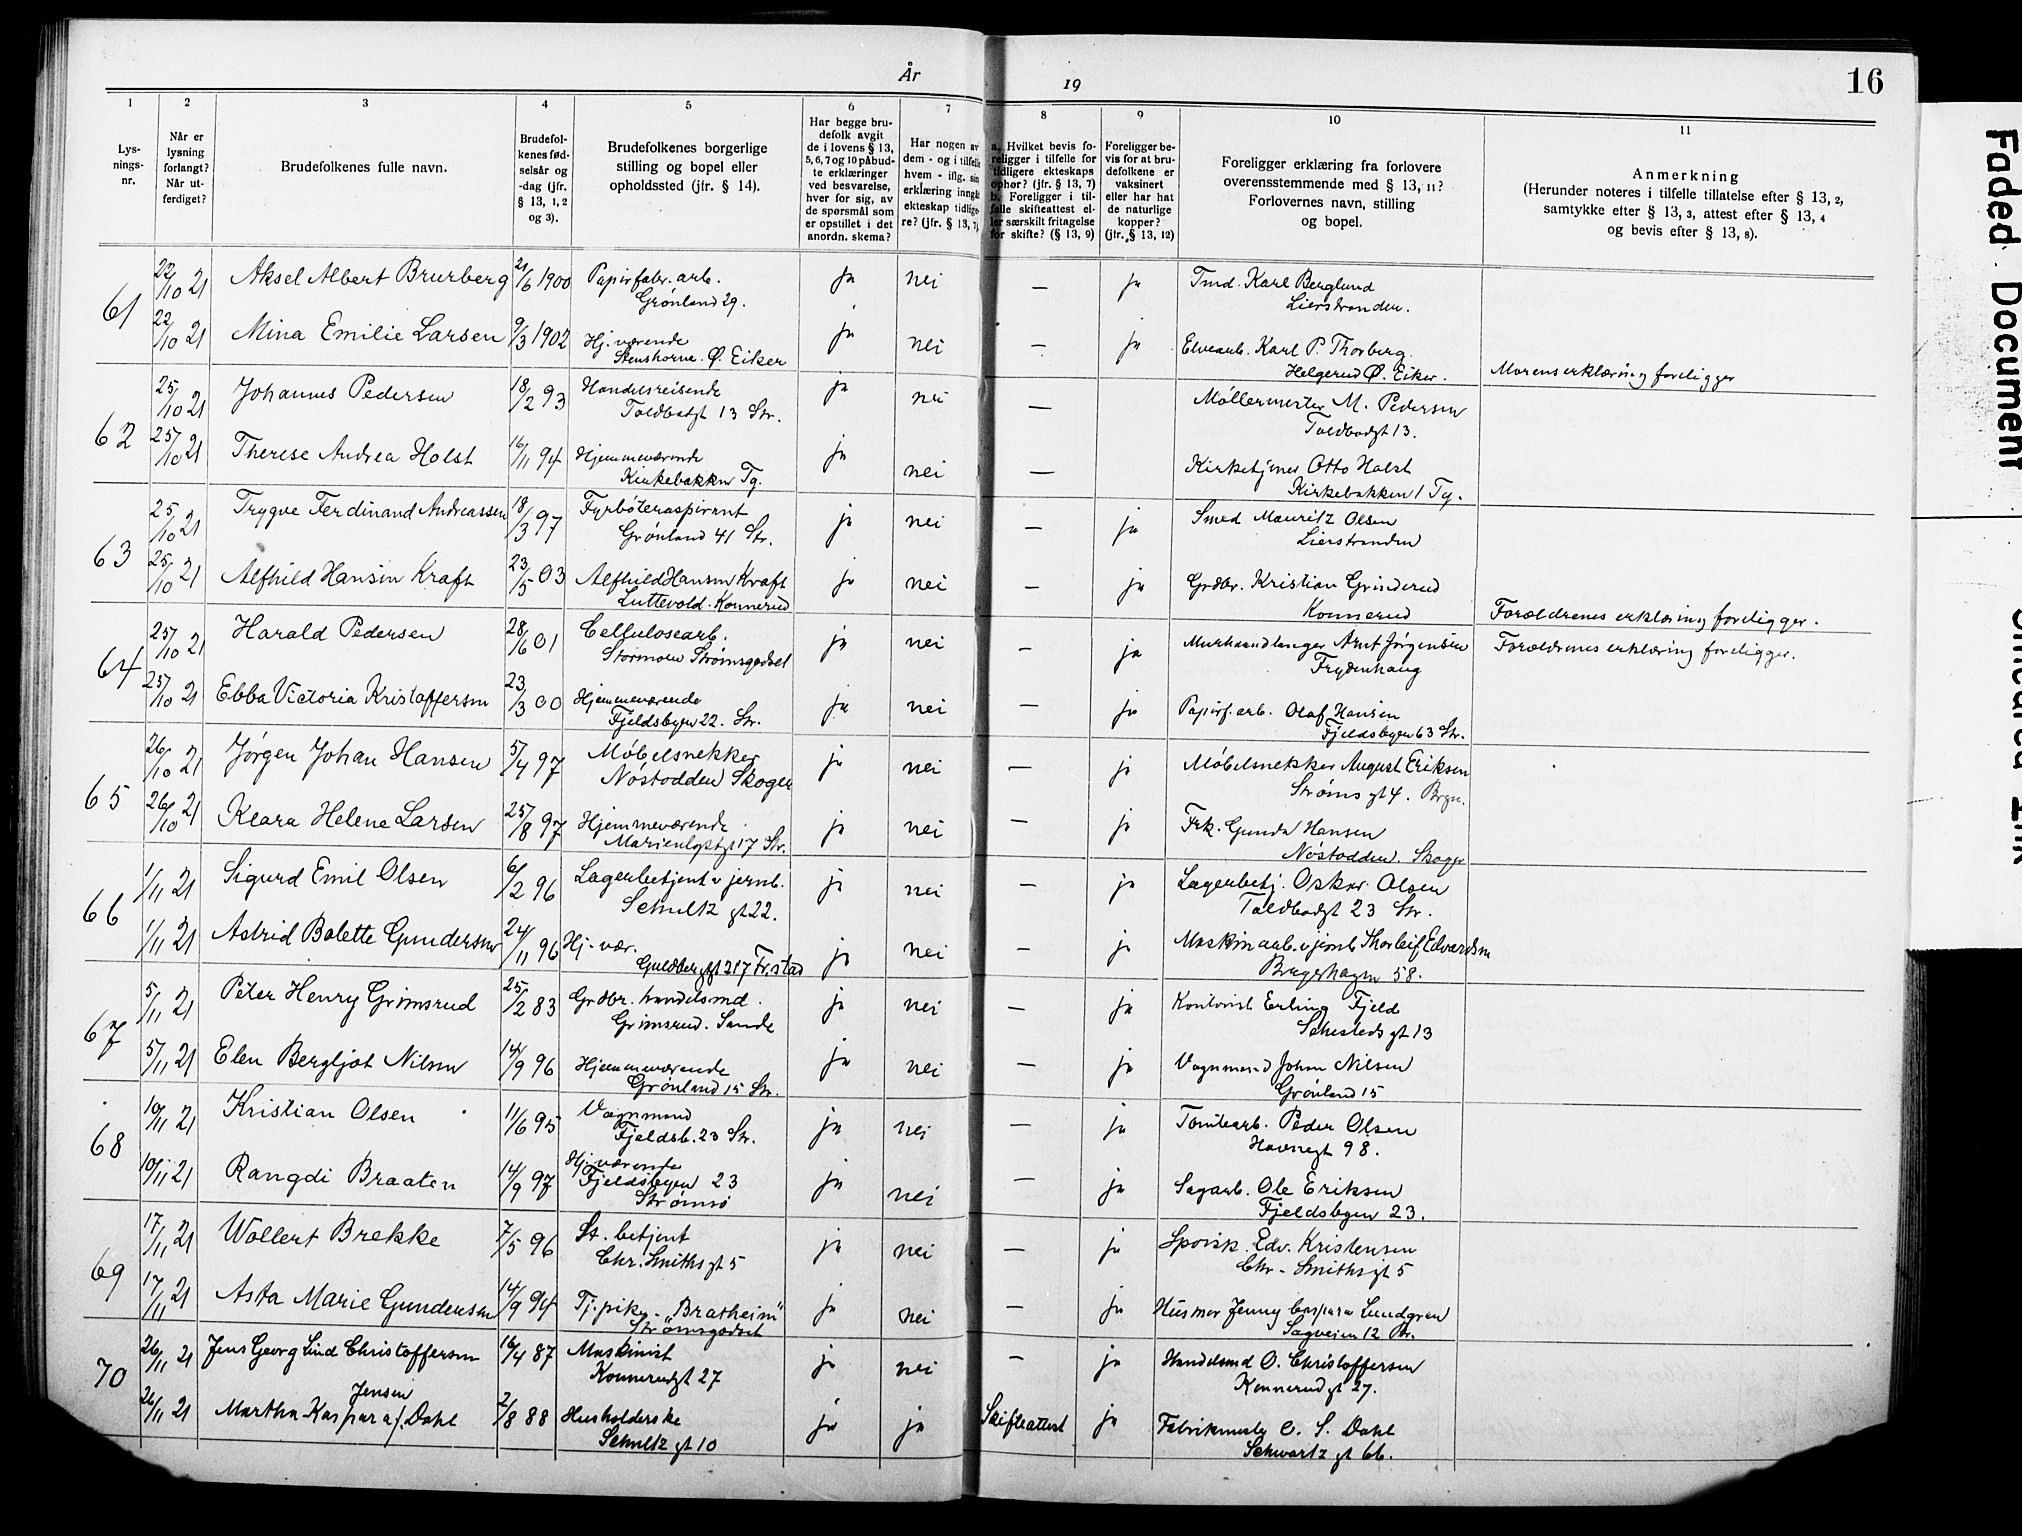 År 19
16
1 2 3 4 5 6 7 8 9 10 11
Lys-
nings-
nr.
Når er
lysning
forlangt?
Når ut-
ferdiget?
Brudefolkenes fulle navn.
Brudefol-
kenes fød-
selsår og
-dag (jfr.
§ 13, 1, 2
og 3).
Brudefolkenes borgerlige
stilling og bopel eller
opholdssted (jfr. § 14).
Har begge bru-
defolk avgit
de i lovens § 13,
5, 6, 7 og 10 påbud-
te erklæringer
ved besvarelse,
hver for sig, av
de spørsmål som
er opstillet i det
anordn. skema?
Har nogen av
dem - og i tilfelle
hvem - iflg. sin
erklæring inngåt
ekteskap tidlige-
re? (jfr. § 13, 7)
a. Hvilket bevis fo-
religger i tilfelle for
tidligere ekteskaps
ophør? (jfr. § 13, 7)
b. Foreligger i til-
felle skifteattest el-
ler særskilt fritagelse
for skifte? (§ 13, 9)
Foreligger be-
vis for at bru-
defolkene er
vaksinert
eller har hat
de naturlige
kopper?
(jfr. § 13, 12)
Foreligger erklæring fra forlovere
overensstemmende med § 13, 11?
Forlovernes navn, stilling
og bopel.
Anmerkning
(Herunder noteres i tilfelle tillatelse efter § 13, 2,
samtykke efter § 13, 3, attest efter § 13, 4
og bevis efter § 13, 8).
61
22/10 21 Aksel Albert Brurberg 21/6 1900 Papirfabr. arb. ja nei — ja Tmd. Karl Berglund
Grönland 29. Lierstranden.
22/10 21 Mina Emilie Larsen 9/3 1902 Hj. værende ja nei — ja Elvearb. Karl P. Thorberg.
Stenshorne. Ø. Eiker Helgerud Ø. Eiker. Morens erklæring foreligger
62
25/10 21 Johannes Pedersen 18/2 93 Handelsreisende ja nei — Møllermester M. Pedersen
Toldbodgt 13 Str. Toldbodgt 13.
25/10 21 Therese Andrea Holst 16/11 94 Hjemmeværende ja nei — Kirketjener Otto Holst
Kirkebakken Tg. Kirkebakken 1 Tg.
63
25/10 21 Trygve Ferdinand Andreassen 18/3 97 Fyrböteraspirant ja nei — ja Smed Mauritz Olsen
Grönland 41 Str. Lierstranden
25/10 21 Alfhild Hansin Kraft 23/5 03 Alfhild Hansin Kraft ja nei — ja Grdbr. Kristian Grinderud
Luttevold. Konnerud Konnerud Forældrenes erklæring foreligger.
64
25/10 21 Harald Pedersen 28/6 01 Cellulosearb. ja nei — ja Murhandlanger Arnt Jörgensen Forældrenes erklæring foreligger.
Stormoen Strömsgodset Frydenhaug
25/10 21 Ebba Victoria Kristoffersen 23/3 00 Hjemmeværende ja nei — ja Papirf. arb. Olaf Hansen
Fjeldsbyen 22. Str. Fjeldsbyen 63 Str.
65
26/10 21 Jörgen Johan Hansen 5/4 97 Möbelsnekker ja nei — ja Möbelsnekker August Eriksen
Nöstodden Skoger Ströms gt 4. Brgn.
26/10 21 Klara Helene Larsen 25/8 97 Hjemmeværende ja nei — ja Frk. Gunda Hansen
Marienlystgt 17 Str. Nöstodden. Skoger
66
1/11 21 Sigurd Emil Olsen 6/2 96 Lagerbetjent v jernb. ja nei — ja Lagerbetj. Oskar Olsen
Schultz gt 22. Toldbodgt 23 Str.
1/11 21 Astrid Bolette Gundersen 24/11 96 Hj. vær. ja nei — ja Maskinarb. v jernb Thorleif Edvardsen
Guldberggt 217 Fr.stad Bragehagen 58.
67
5/11 21 Peter Henry Grimsrud 25/2 83 Grdbr. handelsmd. ja nei — ja Kontorist Erling Fjeld
Grimsrud. Sande Schesteds gt 13
5/11 21 Elen Bergljot Nilsen 14/9 96 Hjemmeværende ja nei — ja Vognmand Johan Nilsen
Grönland 15 Str. Grönland 15
68
10/11 21 Kristian Olsen 11/6 95 Vognmand ja nei — ja Tomtearb. Peder Olsen
Fjeldsb. 23 Str. Havnegt 98.
10/11 21 Rangdi Braaten 14/9 97 Hj. værende ja nei — ja Sagarb. Ole Eriksen
Fjeldsbyen 23 Fjeldsbyen 23.
Strömsö
69
17/11 21 Wollert Brekke 7/5 96 St. betjent ja nei — ja Sporsk. Edv. Kristensen
Chr. Smiths gt 5 Chr. Smiths gt 5
17/11 21 Asta Marie Gundersen 14/9 94 Tj. pike „Bratheim" ja nei — ja Husmor Jenny Caspara Lundgren
Strömsgodset Sagveien 12 Br.
70
26/11 21 Jens Georg Lind Christoffersen 16/4 87 Maskinist ja nei — ja Handelsmd O. Christoffersen
Konnerudgt 27 Konnerud gt 27.
Jensen
26/11 21 Martha Kaspara f. Dahl 2/8 88 Husholderske ja ja Skifteattest ja Fabrikmester C. S. Dahl
Schultz gt 10 Schwartz gt 66.
Faded Document